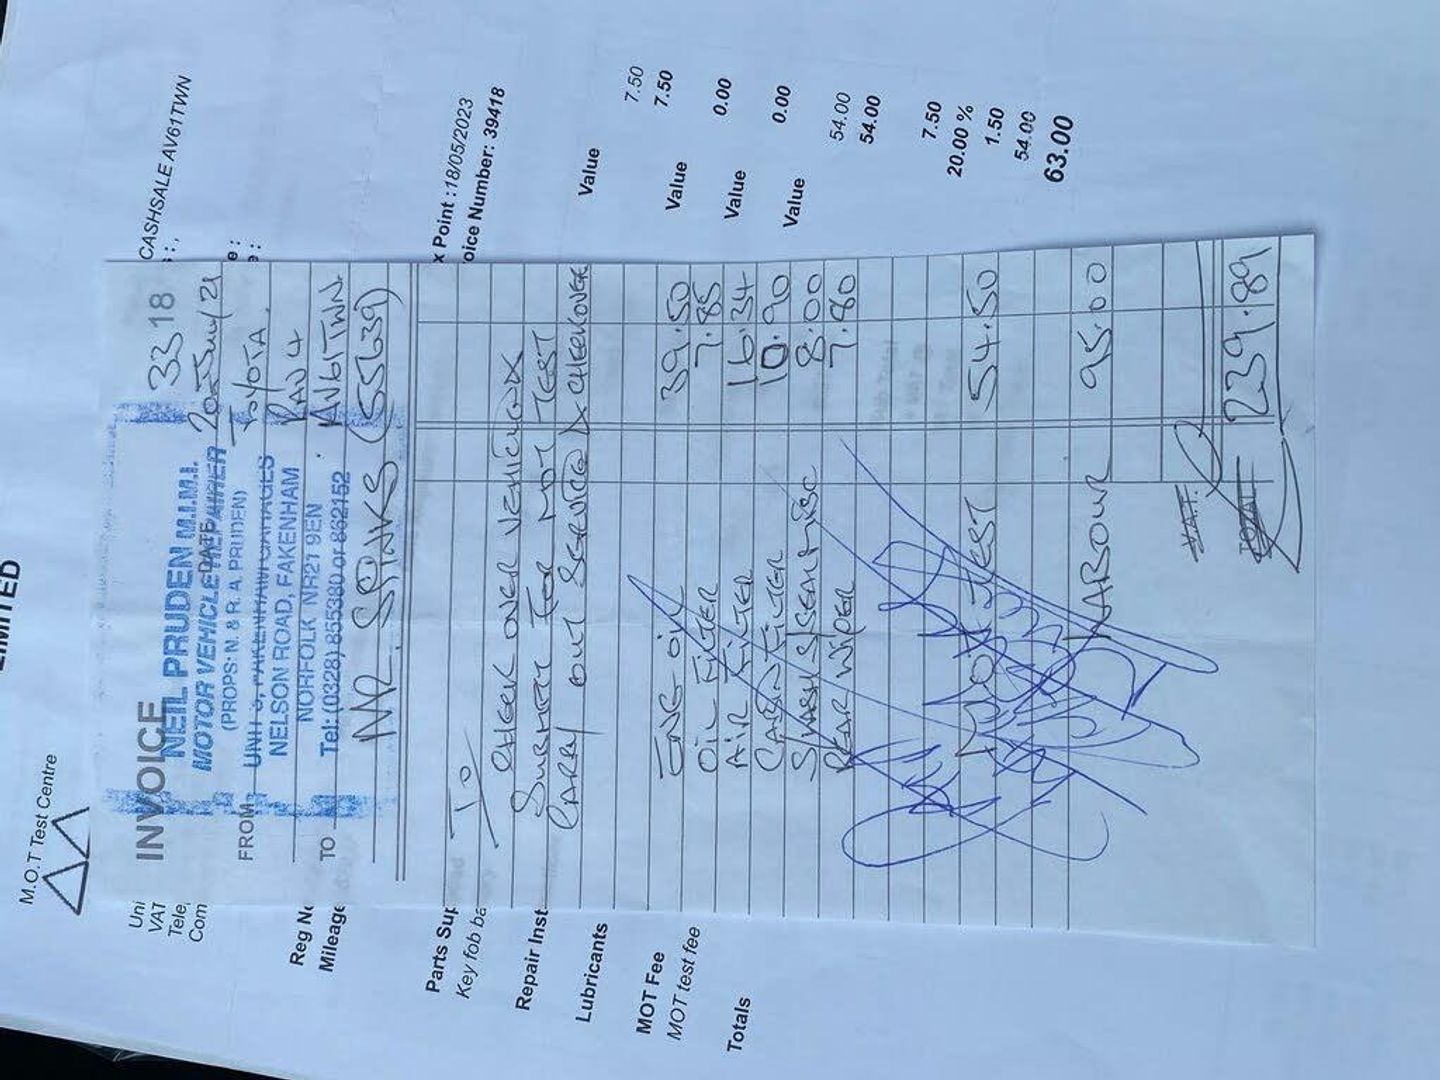 LIMITED
M.O.T Test Centre
CASHSALE AV61TWN
Uni
VAT
Tele
Com
Reg N
Mileage
x Point :18/05/2023
oice Number: 39418
Parts Sup
Value
Key fob ba
7.50
7.50
Repair Inst
Value
0.00
Lubricants
Value
0.00
MOT Fee
Value
MOT test fee
54.00
54.00
Totals
7.50
20.00 %
1.50
54.00
63.00
INVOICE
3318
NEIL PRUDEN M.I.M.I.
DATE 20 June/21
MOTOR VEHICLE REPAIRER
(PROPS: N. & R. A. PRUDEN)
FROM
TOYOTA
UNIT 3, FAKENHAM GARAGES
RAV 4
NELSON ROAD, FAKENHAM
NORFOLK NR21 9EN
AV61TWN.
TO
Tel: (0328) 855380 or 862152
MR. SPINKS (55639)
TO
CHECK OVER VEHICLE &
SUBMIT FOR MOT TEST
CARRY OUT SERVICE & CHECKOVER
ENG OIL 39.50
OIL FILTER 7.85
AIR FILTER 16.34
CABIN FILTER 10.90
S/WASH/SEAL MISC 8.00
REAR WIPER 7.80
MOT TEST 54.50
LABOUR 95.00
V.A.T.
TOTAL 239.89